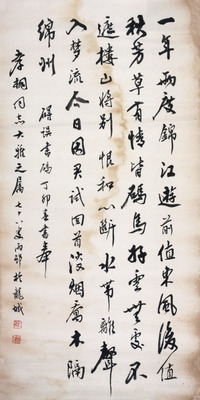 一年兩度錦江遊前值東風後值
秋芳草有情皆碼馬好雲無處不
遮樓山將别恨和心斷水帶離聲
入夢流今日因君試回首淡烟喬木隔
綿州 礙誤書碼 丁卯春書奉
孝桐同志大雅之屬 七十八叟丙 於龍城